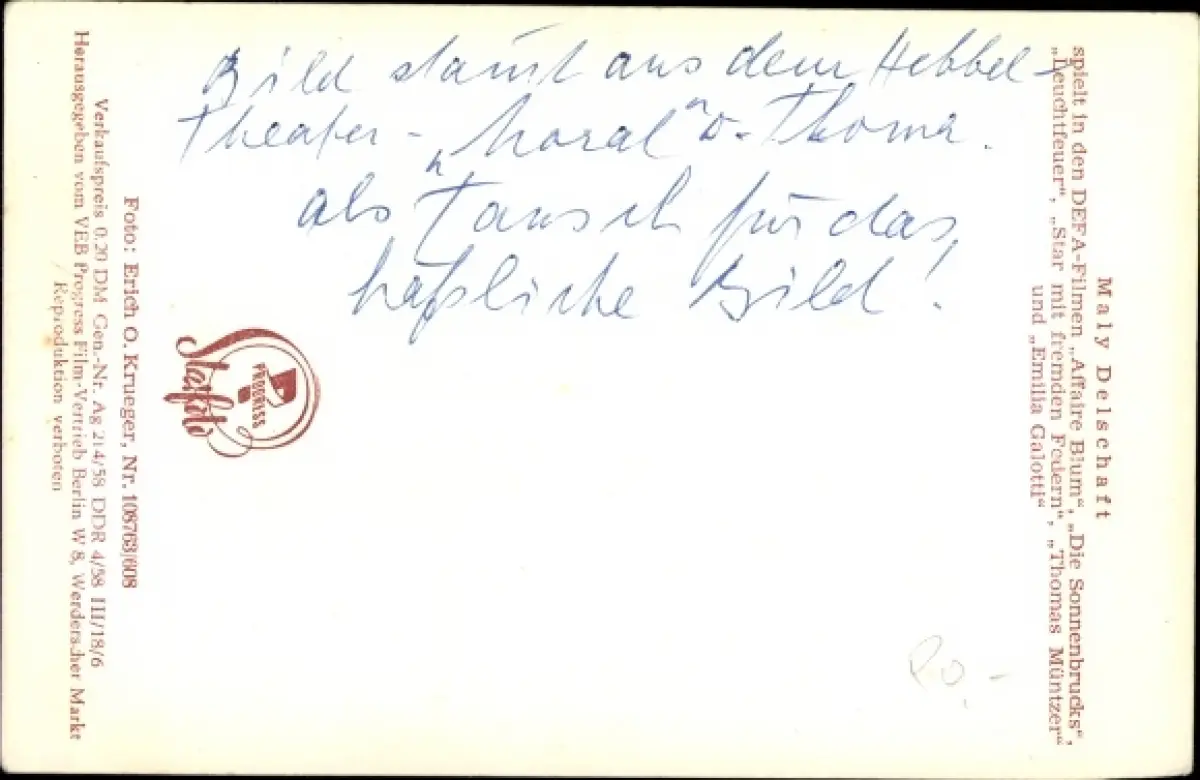 Bild stamt aus dem Hebbel-
Theater - „Moral“ v. Thoma.
als Tausch für das,
häßliche Bild!
Maly Delschaft
spielt in den DEFA-Filmen „Affaire Blum“, „Die Sonnenbrucks“,
„Leuchtfeuer“, „Star mit fremden Federn“, „Thomas Müntzer“
und „Emilia Galotti“
PROGRESS
Starfoto
Foto: Erich O. Krueger, Nr. 108763/608
Verkaufspreis 0.20 DM Gen.-Nr. Ag 214/58 DDR 4/58 III/18/6
Herausgegeben vom VEB Progress Film-Vertrieb Berlin W 8, Werderscher Markt
Reproduktion verboten